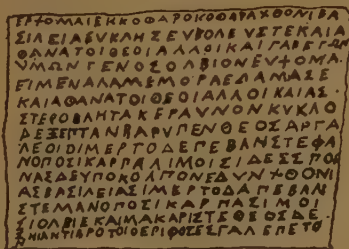 ΕΡΧΟΜΑΙΕΚΚΟΘΑΡΟΚΟΘΑΡΑΧΘΟΝΙΒΑ
ΣΙΛΕΙΑΕΥΚΛΗΣΕΥΒΟΛΕΥΣΤΕΚΑΙΑ
ΘΑΝΑΤΟΙΘΕΟΙΑΛΛΟΙΚΑΙΓΑΡΕΓΩΝ
ΥΜΩΝΓΕΝΟΣΟΛΒΙΟΝΕΥΧΟΜΑ
ΕΙΜΕΝΑΛΑΜΕΜΟΡΑΕΔΑΜΑΣΕ
ΚΑΙΑΘΑΝΑΤΟΙΘΕΟΙΑΛΛΟΙΚΑΙΑΣ
ΣΤΕΡΟΒΛΗΤΑΚΕΡΑΥΝΟΝΚΥΚΛΟ
ΔΕΞΕΠΤΑΝΒΑΡΥΠΕΝΘΕΟΣΑΡΓΑ
ΛΕΟΙΔΙΜΕΡΤΟΔΕΠΕΒΑΝΣΤΕΦΑ
ΝΟΠΟΣΙΚΑΡΠΑΛΙΜΟΙΣΙΔΕΣΣΠΟΙ
ΝΑΣΔΕΥΠΟΚΟΛΠΟΝΕΔΥΝΧΘΟΝΙ
ΑΣΒΑΣΙΛΕΙΑΣΙΜΕΡΤΟΔΑΠΕΒΑΝ
ΣΤΕΜΑΝΟΠΟΣΙΚΑΡΠΑΣΙΜΟΙ
ΣΙΟΛΒΙΕΚΑΙΜΑΚΑΡΙΣΤΕΘΕΟΣΔΕ